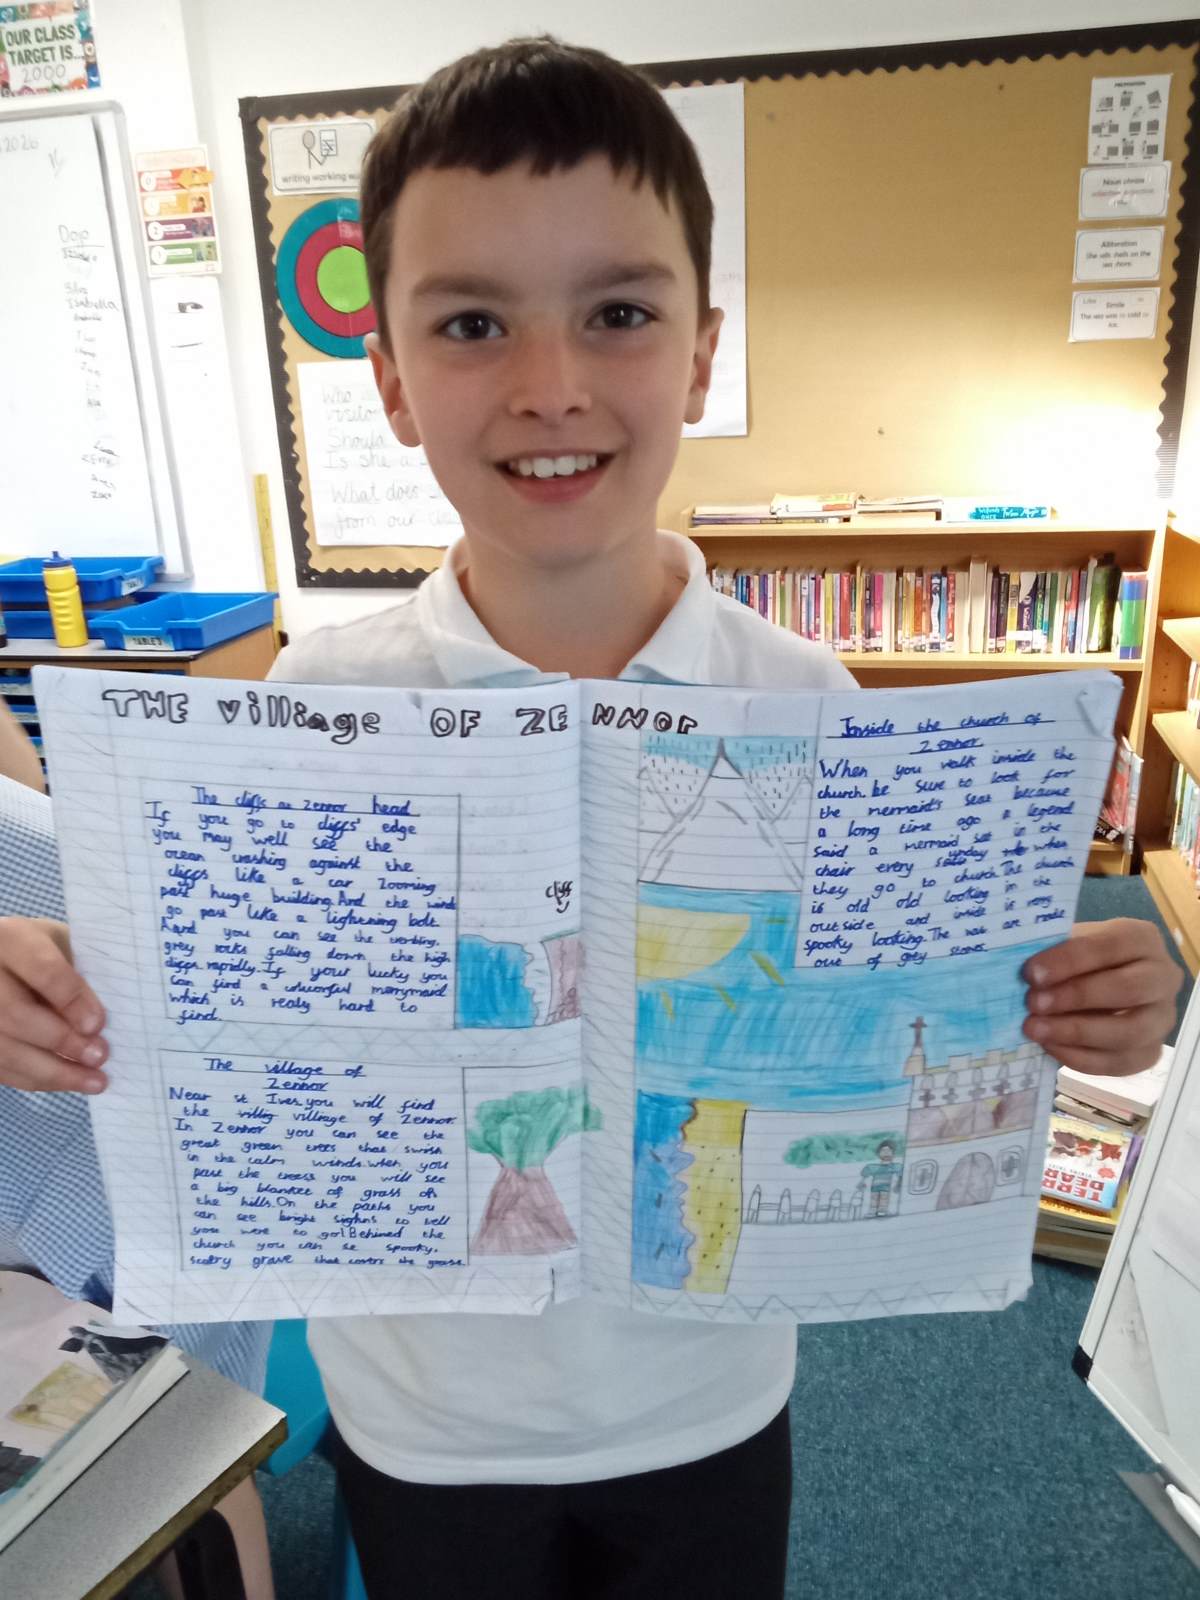 OUR CLASS
TARGET IS...
2000
2026
writing working
Noun phrase
Alliteration
She sells shells on the
sea shore.
Simile
The sea was as cold as
ice.
Who
visitor
Shayla
Is she a
What does
from our
TABLE 3
THE village OF ZENNOr
The cliffs at Zennor head
If you go to cliffs' edge
you may well see the
ocean crashing against the
cliffs like a car zooming
past huge building. And the wind
go past like a lightning bolt.
And you can see the
grey rocks falling down the high
cliffs rapidly. If your lucky you
can find a merrymaid
which is realy hard to
find.
cliff
The village of
Zennor
Near st Ives you will find
the village of Zennor.
In Zennor you can see the
great green trees that swish
in the calm winds. when you
past the trees you will see
a big blanket of grass on
the hills. On the paths you
can see bright sighns to tell
you were to go! Behined the
church you can se spooky,
scary grave that covers the grass.
Inside the church of
Zennor.
When you walk inside the
church. be sure to look for
the mermaid's seat because
a long time ago a legend
said a mermaid sat in the
chair every when
they go to church. The church
is old old looking in the
outside and inside is very
spooky looking. The are made
out of grey stones.
TERRY
DEARY